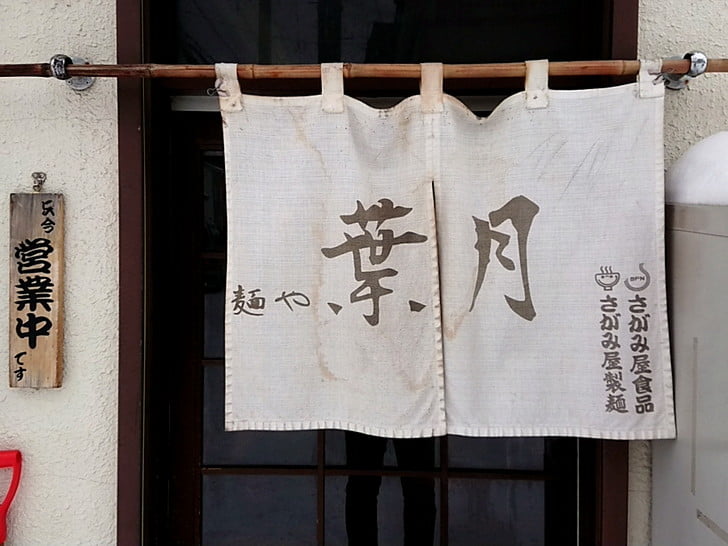 只今営業中です
麺や 葉月
SFN
さがみ屋食品
さがみ屋製麺